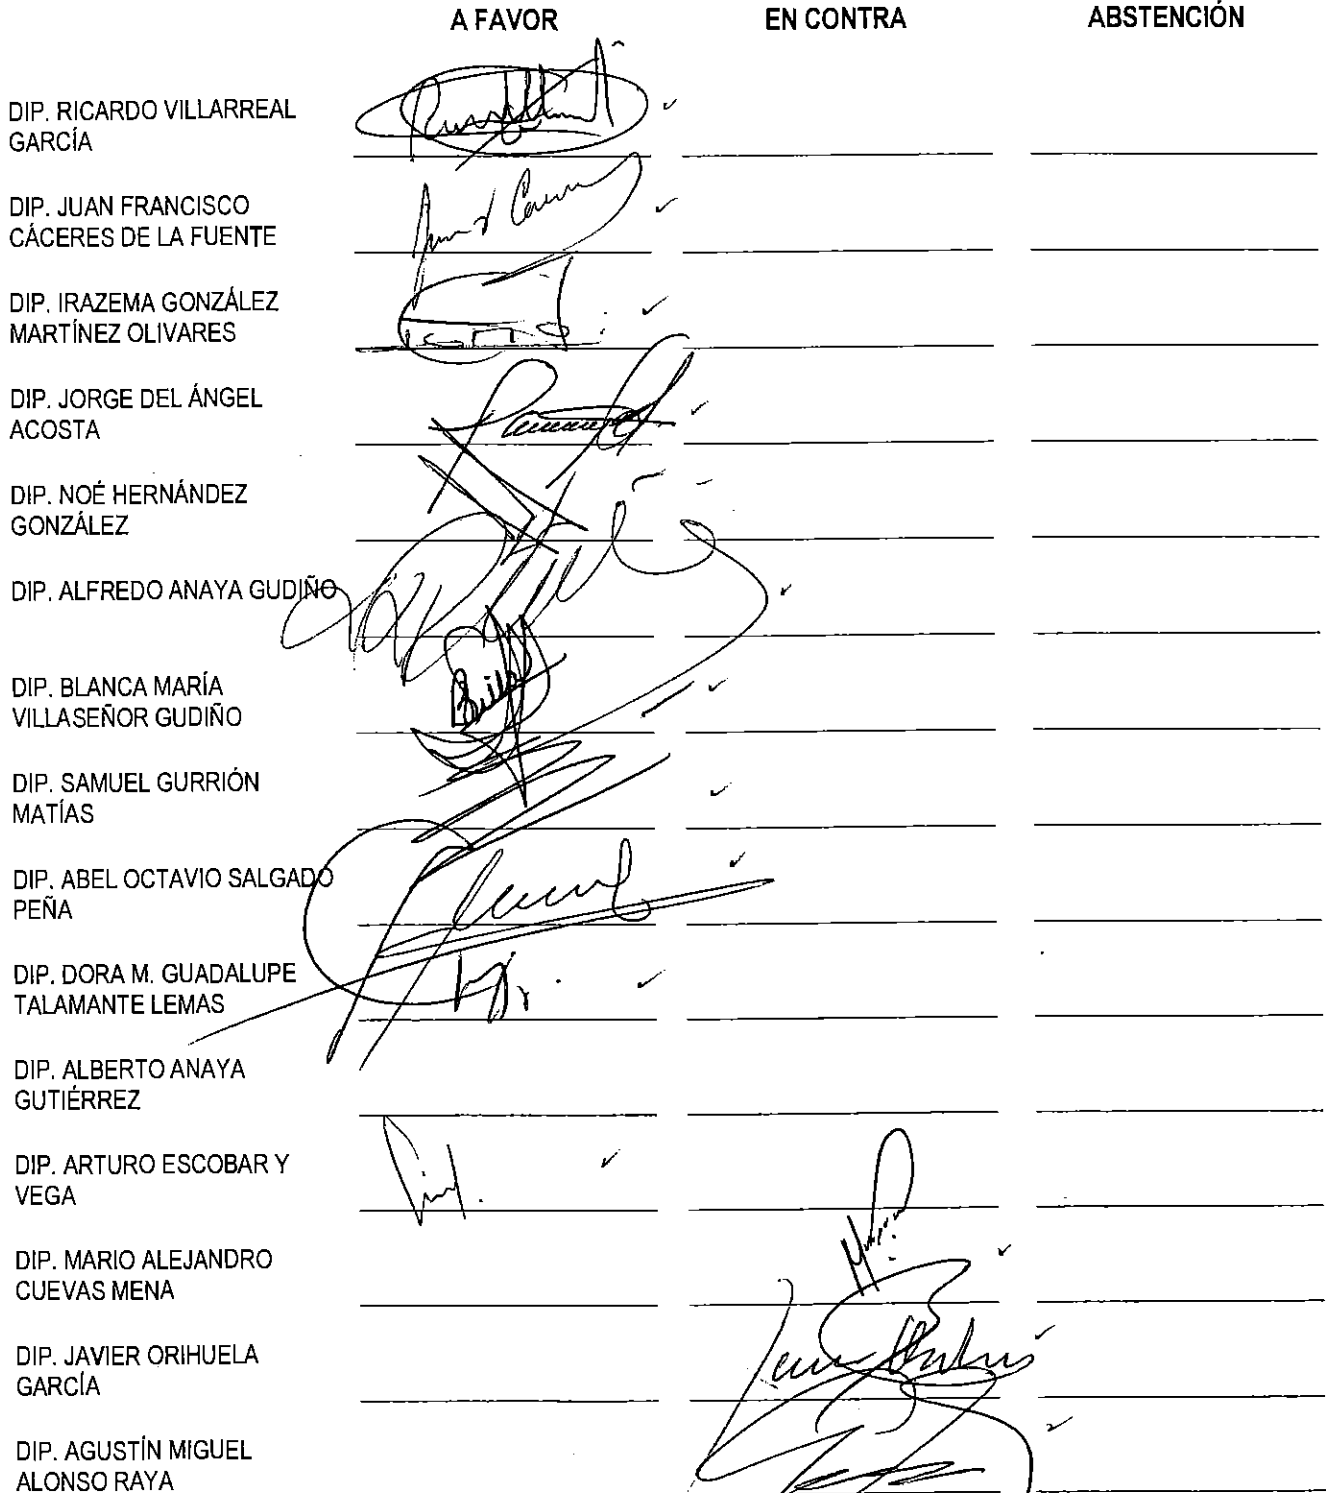 A FAVOR EN CONTRA ABSTENCIÓN
DIP. RICARDO VILLARREAL
GARCÍA
DIP. JUAN FRANCISCO
CÁCERES DE LA FUENTE
DIP. IRAZEMA GONZÁLEZ
MARTÍNEZ OLIVARES
DIP. JORGE DEL ÁNGEL
ACOSTA
DIP. NOÉ HERNÁNDEZ
GONZÁLEZ
DIP. ALFREDO ANAYA GUDIÑO
DIP. BLANCA MARÍA
VILLASEÑOR GUDIÑO
DIP. SAMUEL GURRIÓN
MATÍAS
DIP. ABEL OCTAVIO SALGADO
PEÑA
DIP. DORA M. GUADALUPE
TALAMANTE LEMAS
DIP. ALBERTO ANAYA
GUTIÉRREZ
DIP. ARTURO ESCOBAR Y
VEGA
DIP. MARIO ALEJANDRO
CUEVAS MENA
DIP. JAVIER ORIHUELA
GARCÍA
DIP. AGUSTÍN MIGUEL
ALONSO RAYA